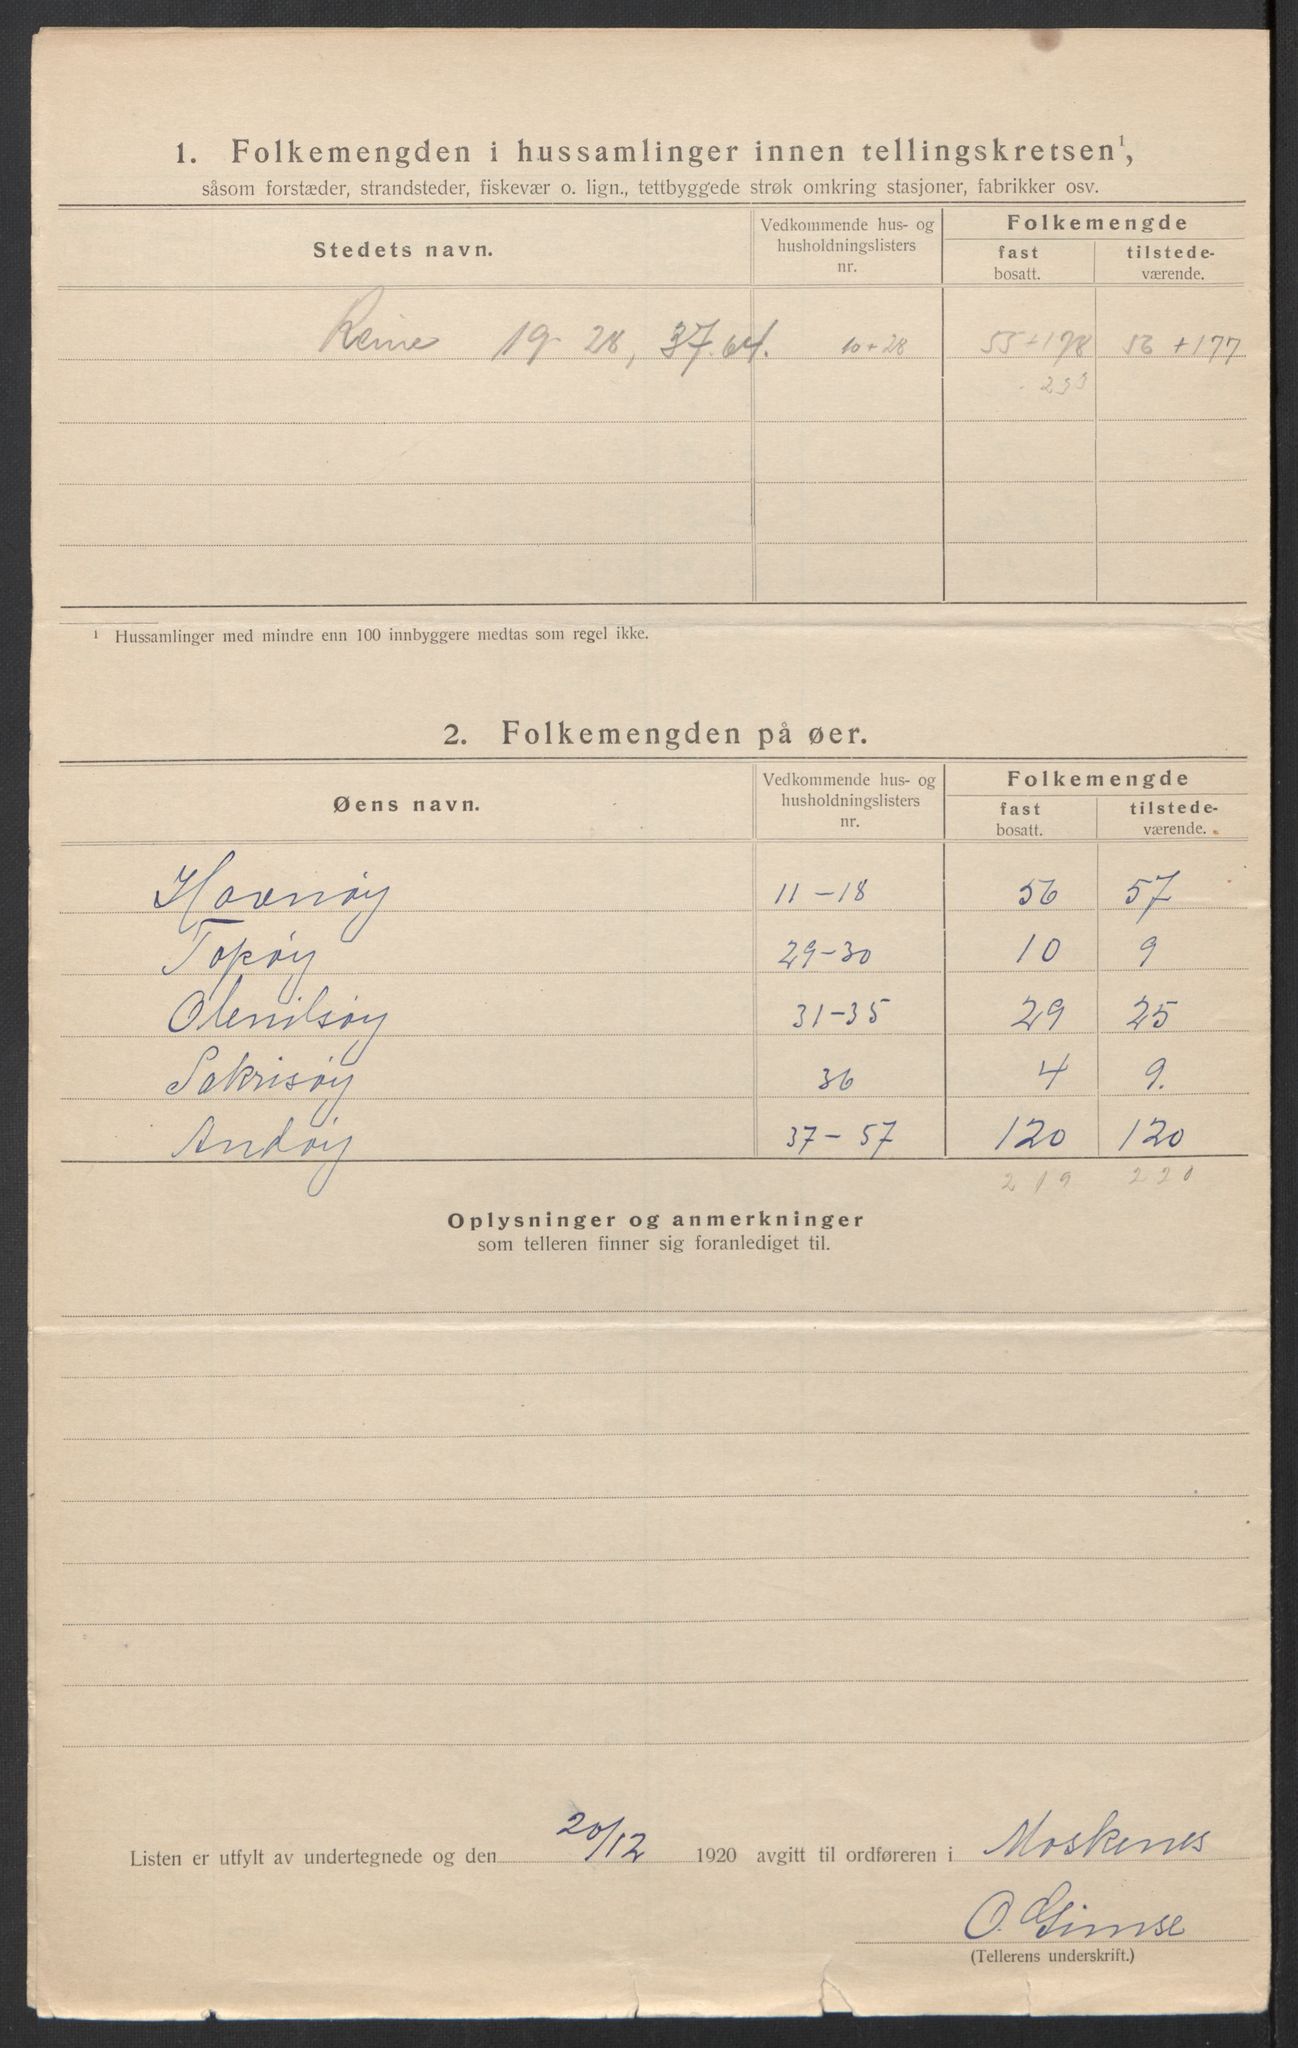 1. Folkemengden i hussamlinger innen tellingskretsen¹,
såsom forstæder, strandsteder, fiskevær o. lign., tettbyggede strøk omkring stasjoner, fabrikker osv.
Stedets navn. Vedkommende hus- og husholdningslisters nr. Folkemengde fast bosatt. tilstede-værende.
Reine 19-28, 37-64. 10+28 55+178 56+177
233
¹ Hussamlinger med mindre enn 100 innbyggere medtas som regel ikke.
2. Folkemengden på øer.
Øens navn. Vedkommende hus- og husholdningslisters nr. Folkemengde fast bosatt. tilstede-værende.
Havnøy 11-18 56 57
Topøy 29-30 10 9
Olenilsøy 31-35 29 25
Sakrisøy 36 4 9.
Andøy 37-57 120 120
219 220
Oplysninger og anmerkninger
som telleren finner sig foranlediget til.
Listen er utfylt av undertegnede og den 20/12 1920 avgitt til ordføreren i Moskenes
O. Gimse
(Tellerens underskrift.)